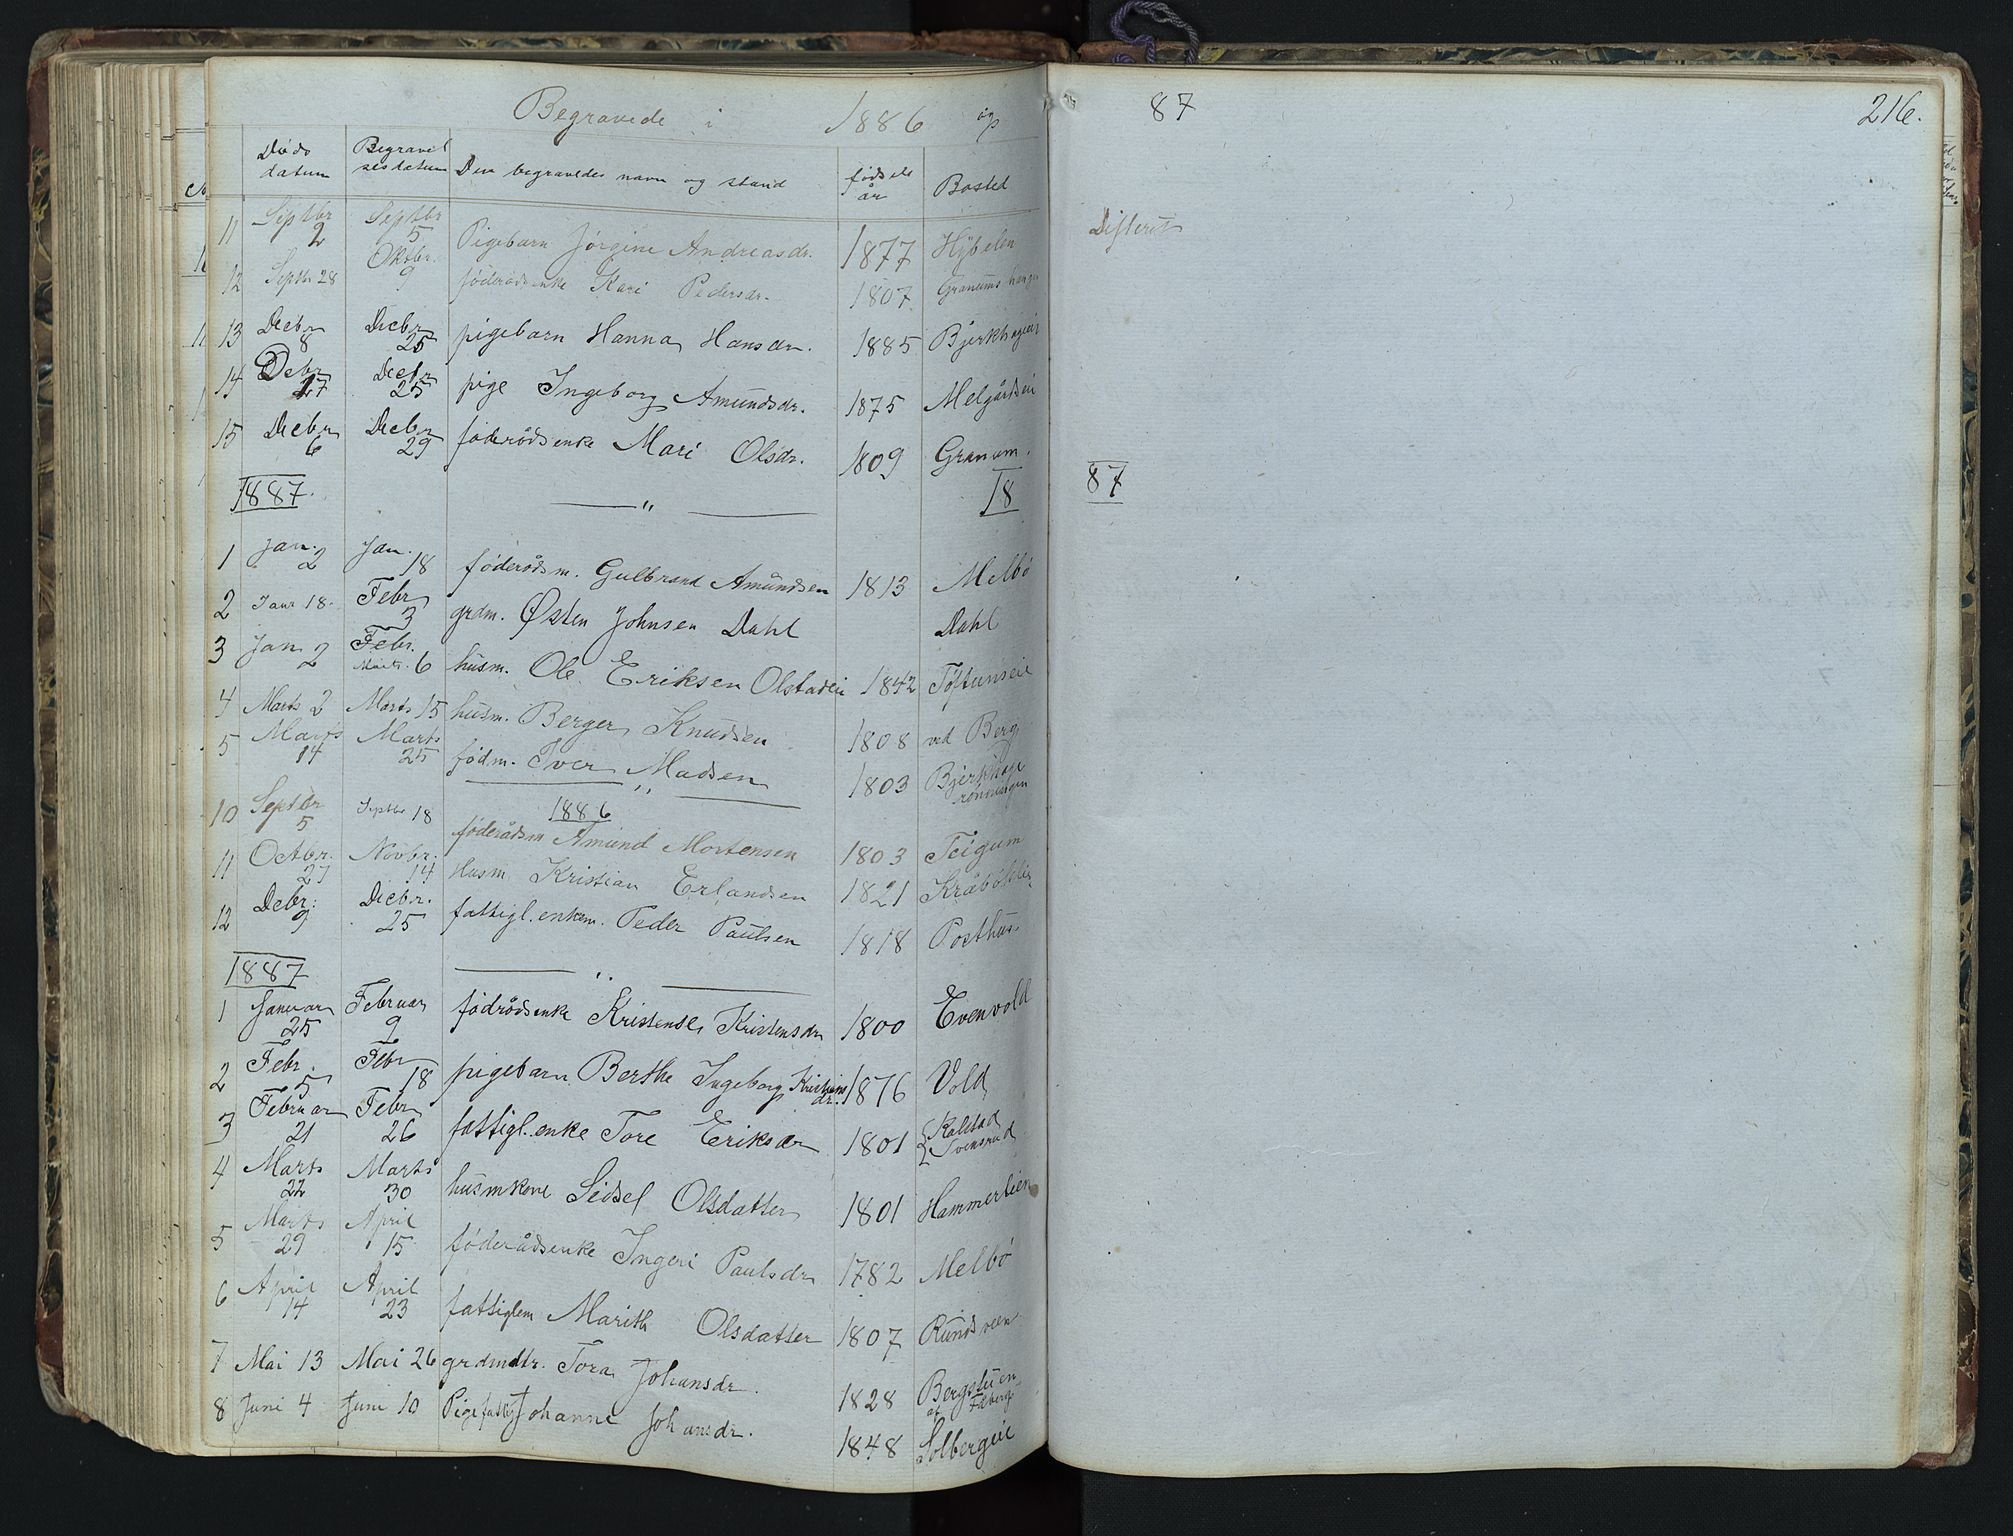 Begravede i 1886 og 87
216.
Døds datum | Begravelsesdatum | Den begravedes navn og stand | fødsels år | Bosted
11 Septbr 2 | Septbr 5 | Pigebarn Jørgine Andreasdr. | 1877 | Hybelen | Difterit
12 Septbr 28 | Oktbr. 9 | føderådsenke Kari Pedersdr. | 1807 | Granums
13 Decbr 8 | Decbr 25 | pigebarn Hanna Hansdr. | 1885 | Bjerkhageei
14 Debr 17 | Decbr 25 | pige Ingeborg Amundsdr. | 1875 | Melgårdsei
15 Decbr 6 | Decbr 29 | føderådsenke Mari Olsdr. | 1809 | Granum.
1887. — " — 18 87
1 Jan. 2 | Jan. 18 | føderådsm. Gulbrand Amundsen | 1813 | Melbö
2 Janr 18. | Febr 3 | grdm. Østen Johnsen Dahl | Dahl
3 Jan 2 | Febr. 6 | husm. Ole Eriksen Olstadeie | 1842 | Töftumseie
4 Marts 2 | Marts 15 | husm. Berger Knudsen | 1808 | ved Berg
5 Marts 14 | Marts 25 | födm. Iver Madsen | 1803 | Bjerkhage rönningen
— " —
1886
10 Septbr 5 | Septbr 18 | føderådsm Amund Mortensen | 1803 | Teigum
11 Octbr. 27 | Novbr. 14 | Husm Kristian Erlandsen | 1821 | Kråbölslie
12 Debr: 9 | Decbr. 25 | fattigl. enkem. Peder Paulsen | 1818 | Posthus
1887 — " —
1 Januar 25 | Februar 9 | födrådsenke Kristense Kristensdr | 1800 | Evenvold
2 Febr. 5 | Febr 18 | pigebarn Berthe Ingeborg Kristians dr. | 1876 | Vold
3 Februar 21 | Febr 26 | fattigl. enke Tore Eriksdr | 1801 | Kalstad Svensrud
4 Marts 22 | Marts 30 | husmkone Sidsel Olsdatter | 1801 | Hammerlien
5 Marts 29 | April 15 | föderådsenke Ingeri Paulsdr | 1782 | Melbö
6 April 14 | April 23 | fattiglem Marith Olsdatter | 1807 | Rundsveen
7 Mai 13 | Mai 26 | grdmdtr. Tora Johansdr. | 1828 | Bergslien af Fåberg
8 Juni 4 | Juni 10 | Pige fattig Johanne Johansdr. | 1848 | Solbergeie